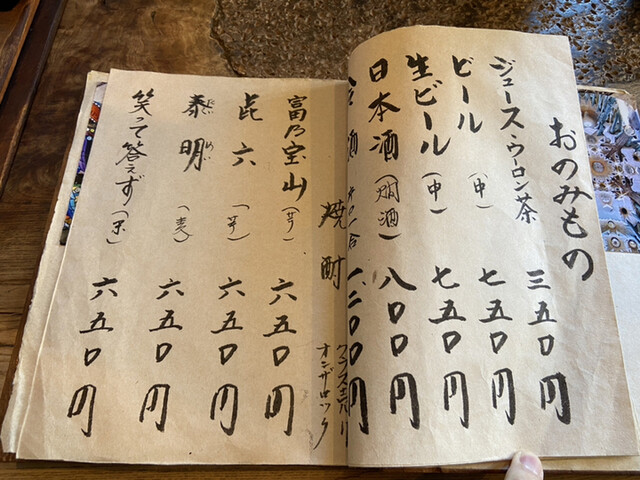 おのみもの
ジュース・ウーロン茶 三五〇円
ビール (中) 七五〇円
生ビール (中) 七五〇円
日本酒 (燗酒) 八〇〇円
酒 一合 一、二〇〇円
焼酎 グラス売り オンザロック
富乃宝山 (芋) 六五〇円
㐂六 (芋) 六五〇円
泰明 たい めい (麦) 六五〇円
笑って答えず (米) 六五〇円